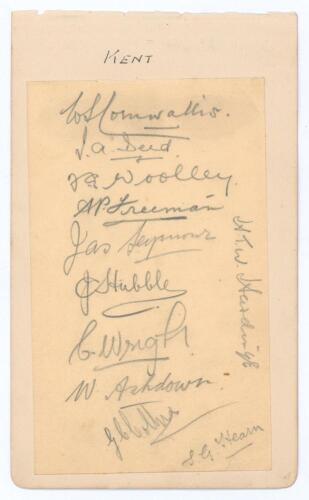 KENT
W S Cornwallis.
J. A. Deed
F E Woolley.
A P Freeman
Jas Seymour
J Hubble
C. Wright.
W. Ashdown.
G C Collins
H. T. W. Hardinge
S. G. Hearn